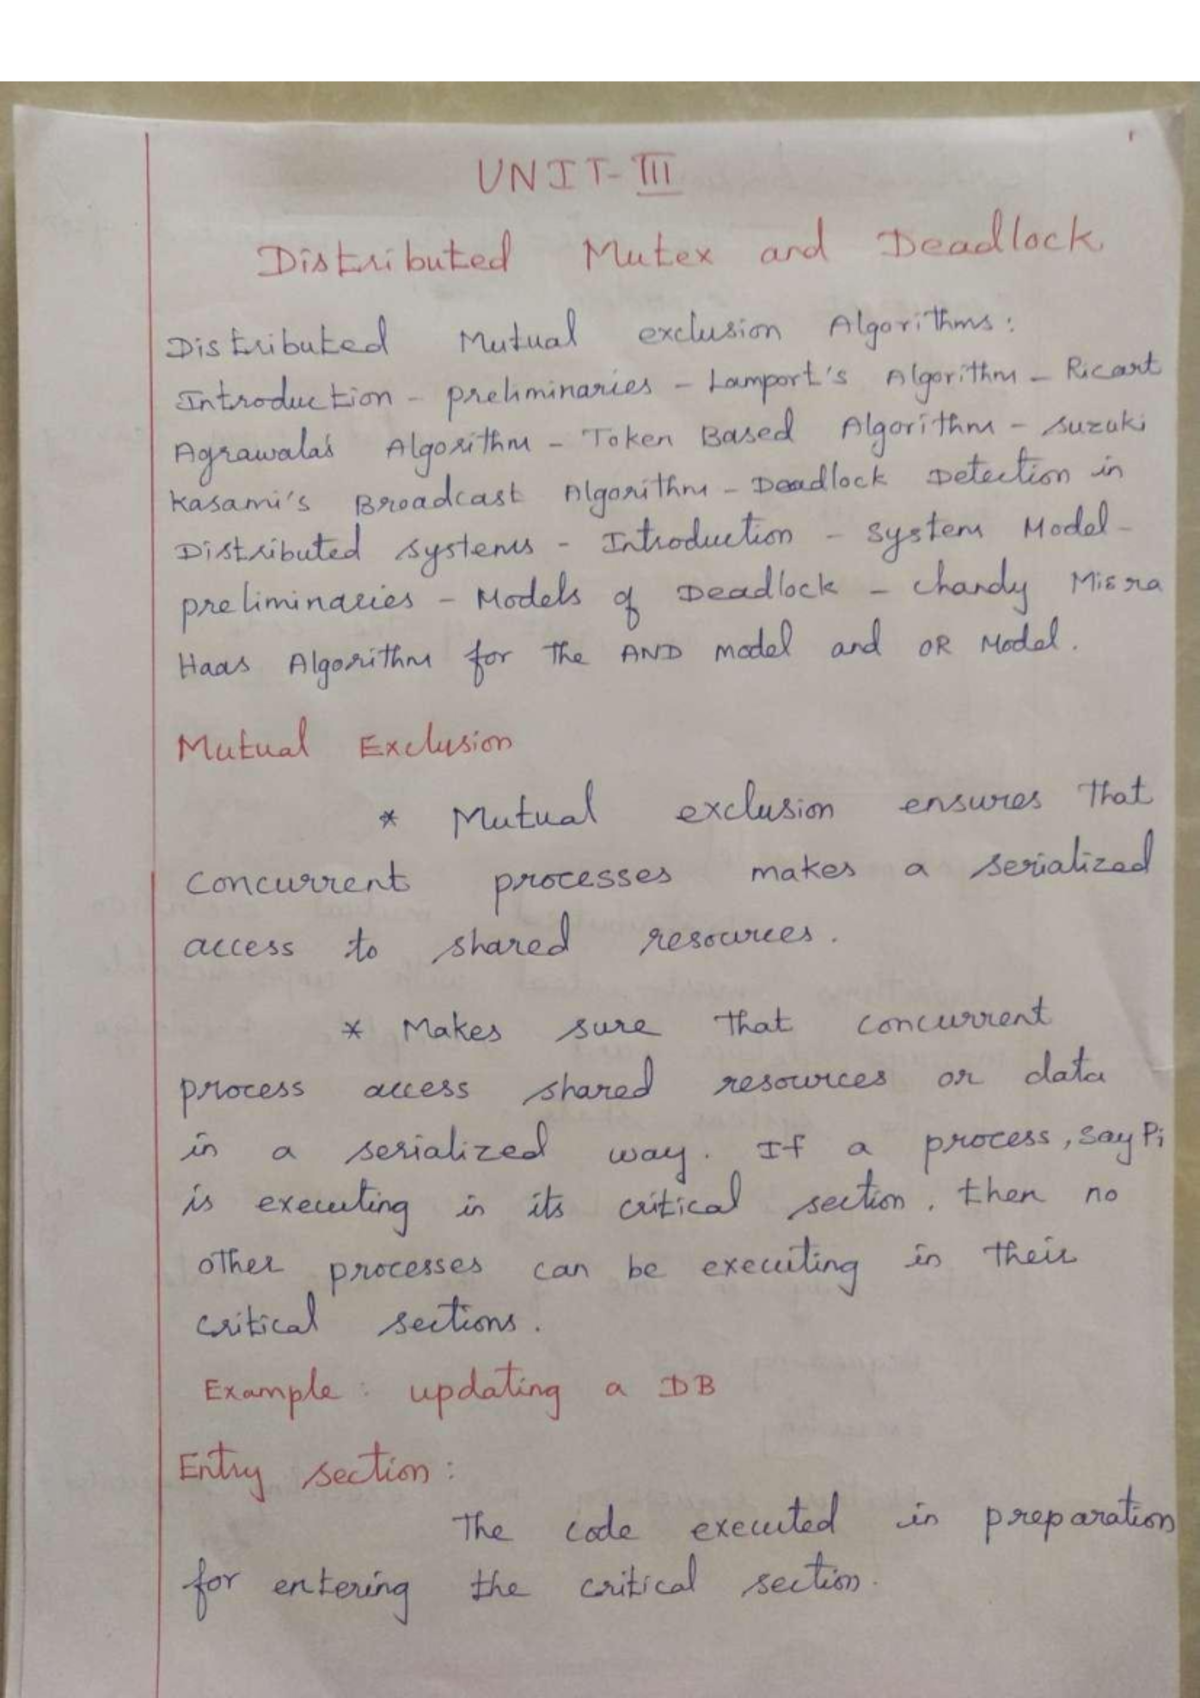 1
UNIT-III
Distributed Mutex and Deadlock
Distributed Mutual exclusion Algorithms:
Introduction - preliminaries - Lamport's Algorithm - Ricart
Agrawala's Algorithm - Token Based Algorithm - Suzuki
Kasami's Broadcast Algorithm - Deadlock Detection in
Distributed systems - Introduction - System Model -
preliminaries - Models of Deadlock - Chandy Misra
Haas Algorithm for the AND model and OR Model.
Mutual Exclusion
* Mutual exclusion ensures that
concurrent processes makes a serialized
access to shared resources.
* Makes sure that concurrent
process access shared resources or data
in a serialized way. If a process, say Pi
is executing in its critical section, then no
other processes can be executing in their
critical sections.
Example: updating a DB
Entry section:
The code executed in preparation
for entering the critical section.